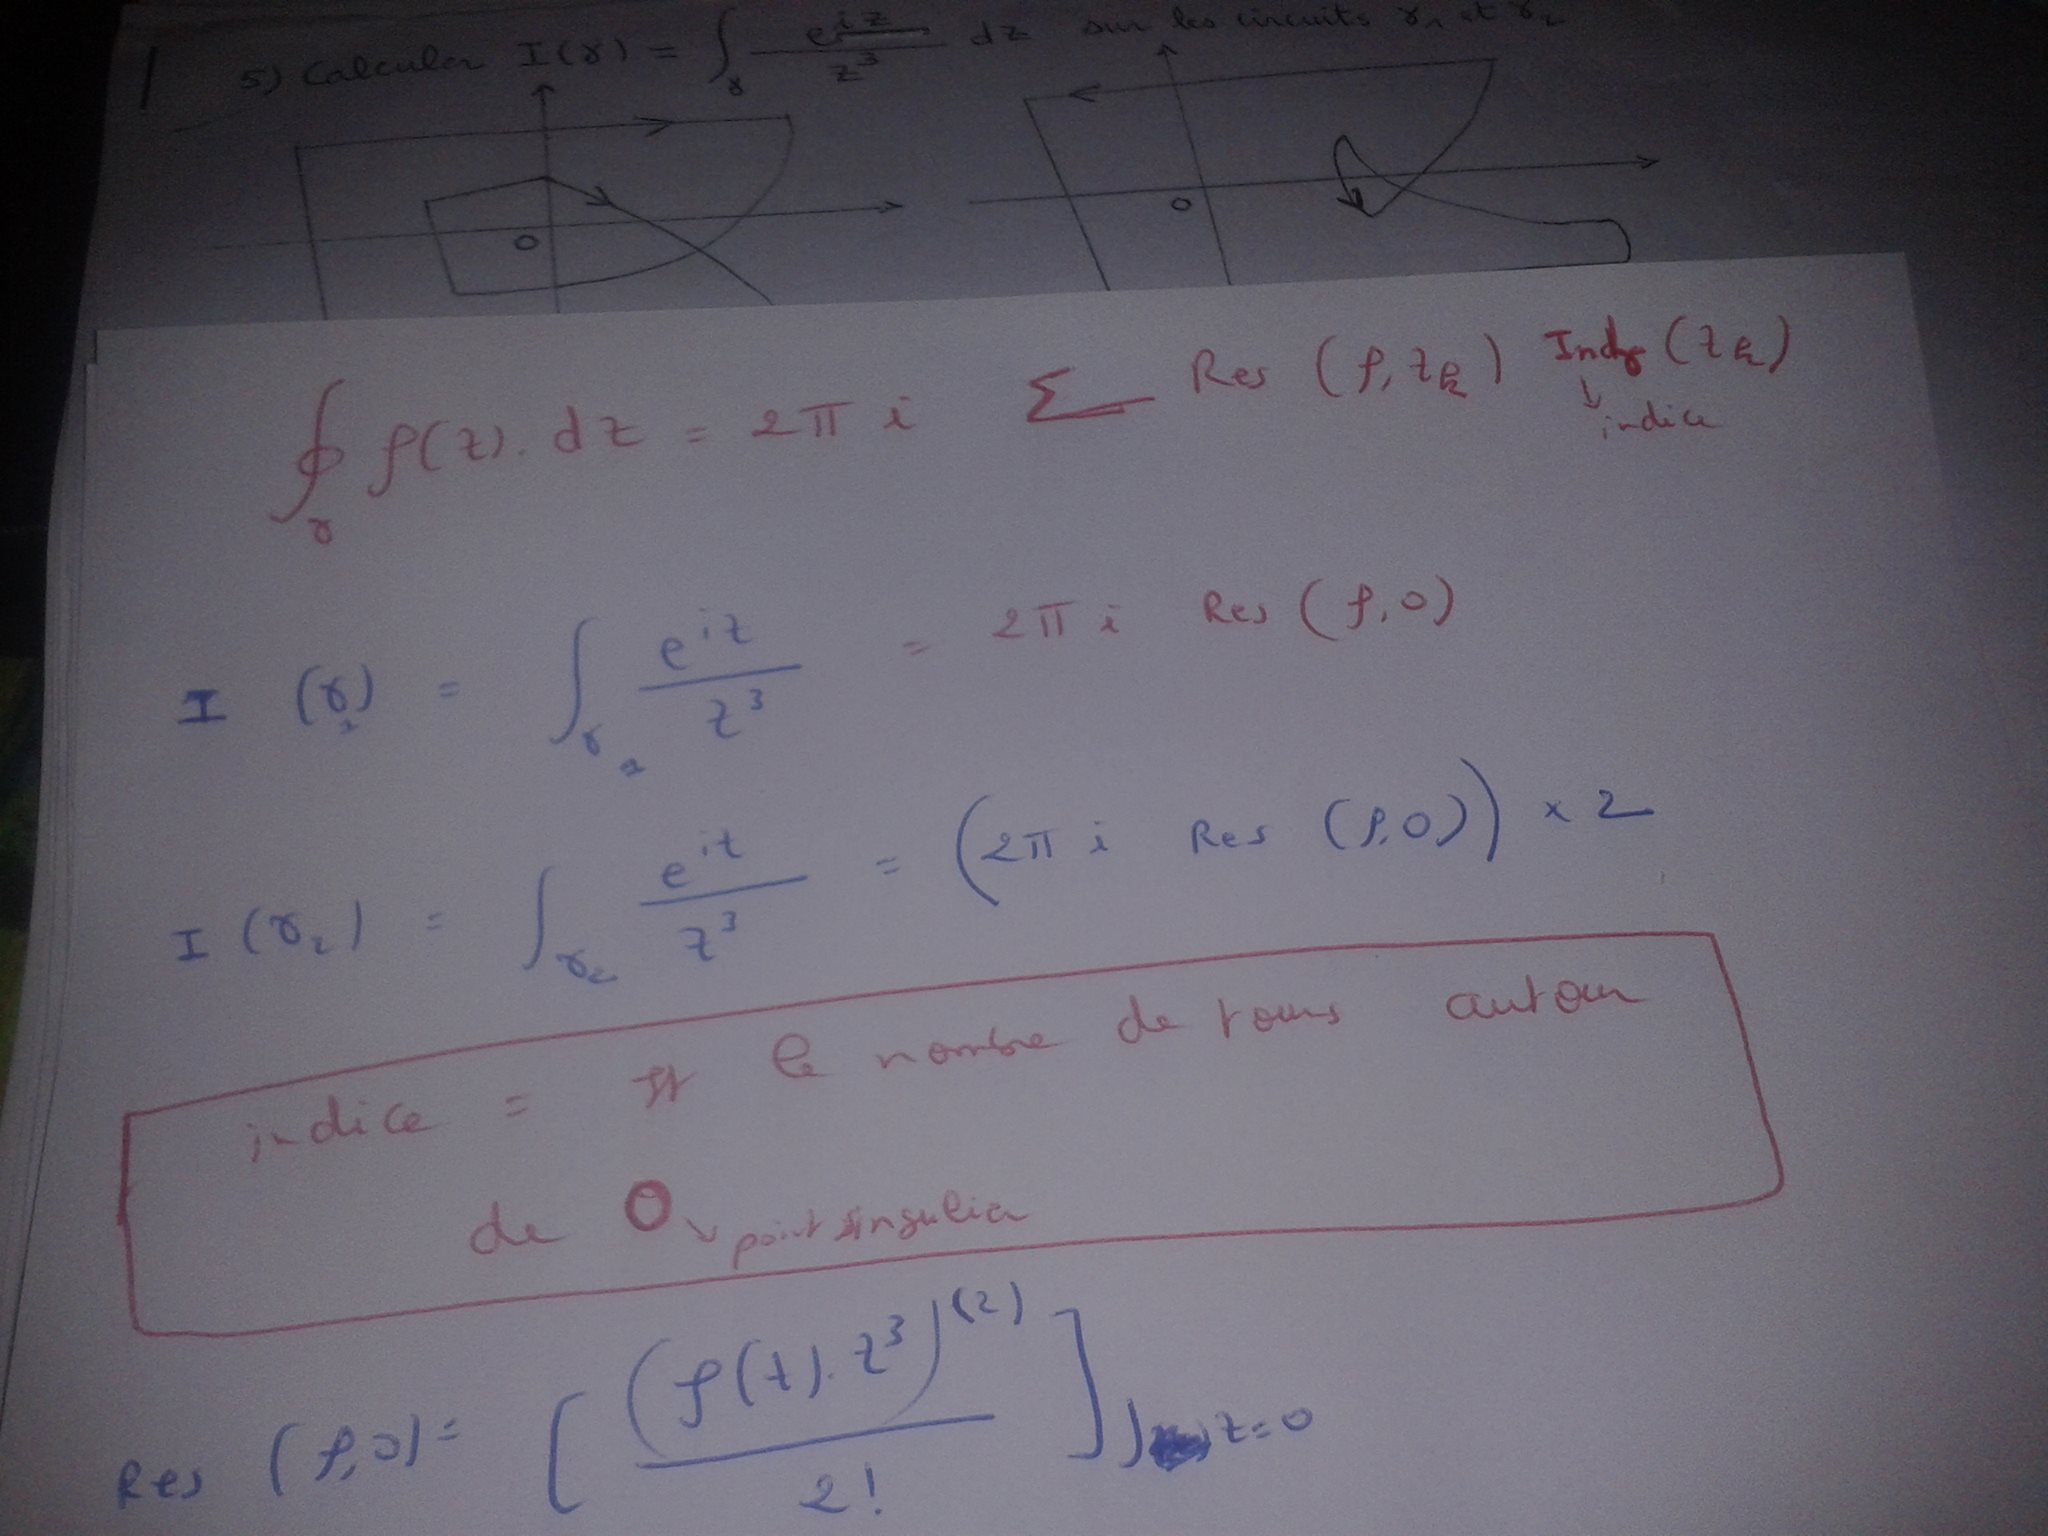 5) Calculer I(γ) = ∫_γ e^{iz}/z³ dz sur les circuits γ₁ et γ₂
O
O
∮_γ f(z). dz = 2π i Σ Res (f, z_k) Ind_γ (z_k)
↓ indice
I (γ₁) = ∫_γ₁ e^{iz}/z³ = 2π i Res (f, 0)
I (γ₂) = ∫_γ₂ e^{iz}/z³ = (2π i Res (f, 0)) × 2
indice = le nombre de tours autour
de O ↘ point singulier
Res (f, 0) = [(f(z). z³)^(2) / 2!] z=0